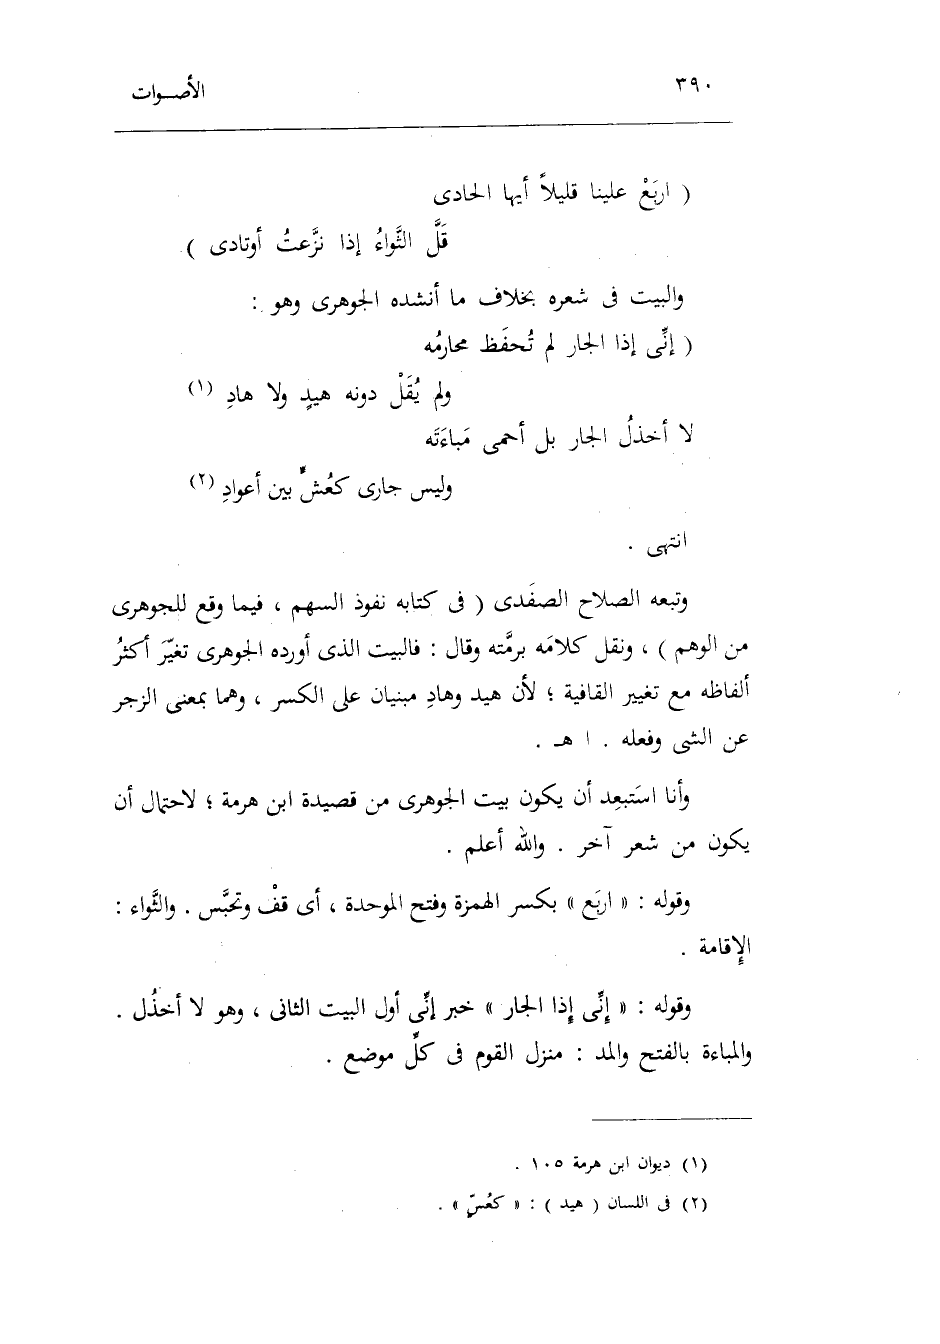 ٣٩٠
الأصـوات
( اربَعْ علينا قليلاً أيها الحادى
قَلَّ الثَّواءُ إذا نزَّعتُ أوتادى )
والبيت فى شعره بخلاف ما أنشده الجوهرى وهو :
( إنِّى إذا الجار لم تُحفَظ محارمُه
ولم يُقَلْ دونه هيدٍ ولا هادِ (١)
لا أخذلُ الجار بل أحمى مَباءَتَه
وليس جارى كعُشٍّ بين أعوادِ (٢)
انتهى .
وتبعه الصلاح الصفَدى ( فى كتابه نفوذ السهم ، فيما وقع للجوهرى
من الوهم ) ، ونقل كلامَه برمَّته وقال : فالبيت الذى أورده الجوهرى تغيّرَ أكثرُ
ألفاظه مع تغيير القافية ؛ لأن هيد وهادِ مبنيان على الكسر ، وهما بمعنى الزجر
عن الشى وفعله . ا هـ .
وأنا استَبعِد أن يكون بيت الجوهرى من قصيدة ابن هرمة ؛ لاحتمال أن
يكون من شعر آخر . والله أعلم .
وقوله : « اربَع » بكسر الهمزة وفتح الموحدة ، أى قفْ وتحبَّس . والثَّواء :
الإقامة .
وقوله : « إنِّى إذا الجار » خبر إنِّى أول البيت الثانى ، وهو لا أخذُل .
والمباءة بالفتح والمد : منزل القوم فى كلِّ موضع .
(١) ديوان ابن هرمة ١٠٥ .
(٢) فى اللسان ( هيد ) : « كعُسٍّ » .